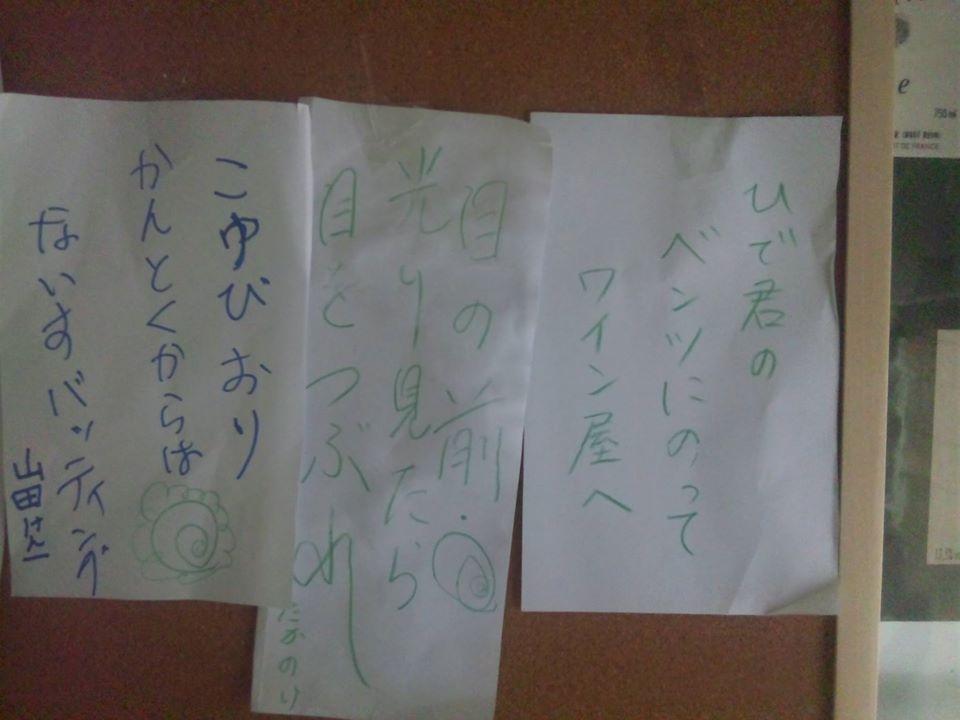 ひで君の
ベンツにのって
ワイン屋へ
目の前
光り見たら
目をつぶれ
たかのり
こゆびおり
かんとくからは
ないすバッティング
山田けん一
e
750 ml
DE FRANCE